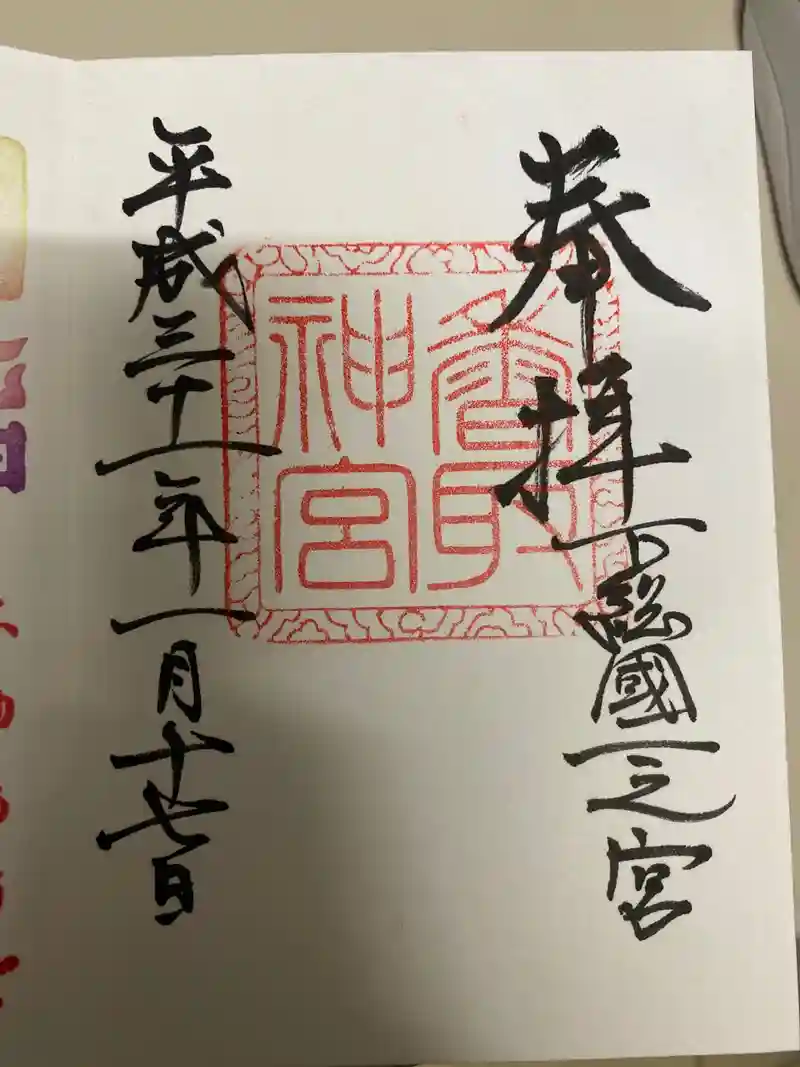 奉拝
下総國一之宮
香取
神宮
平成三十一年一月十七日